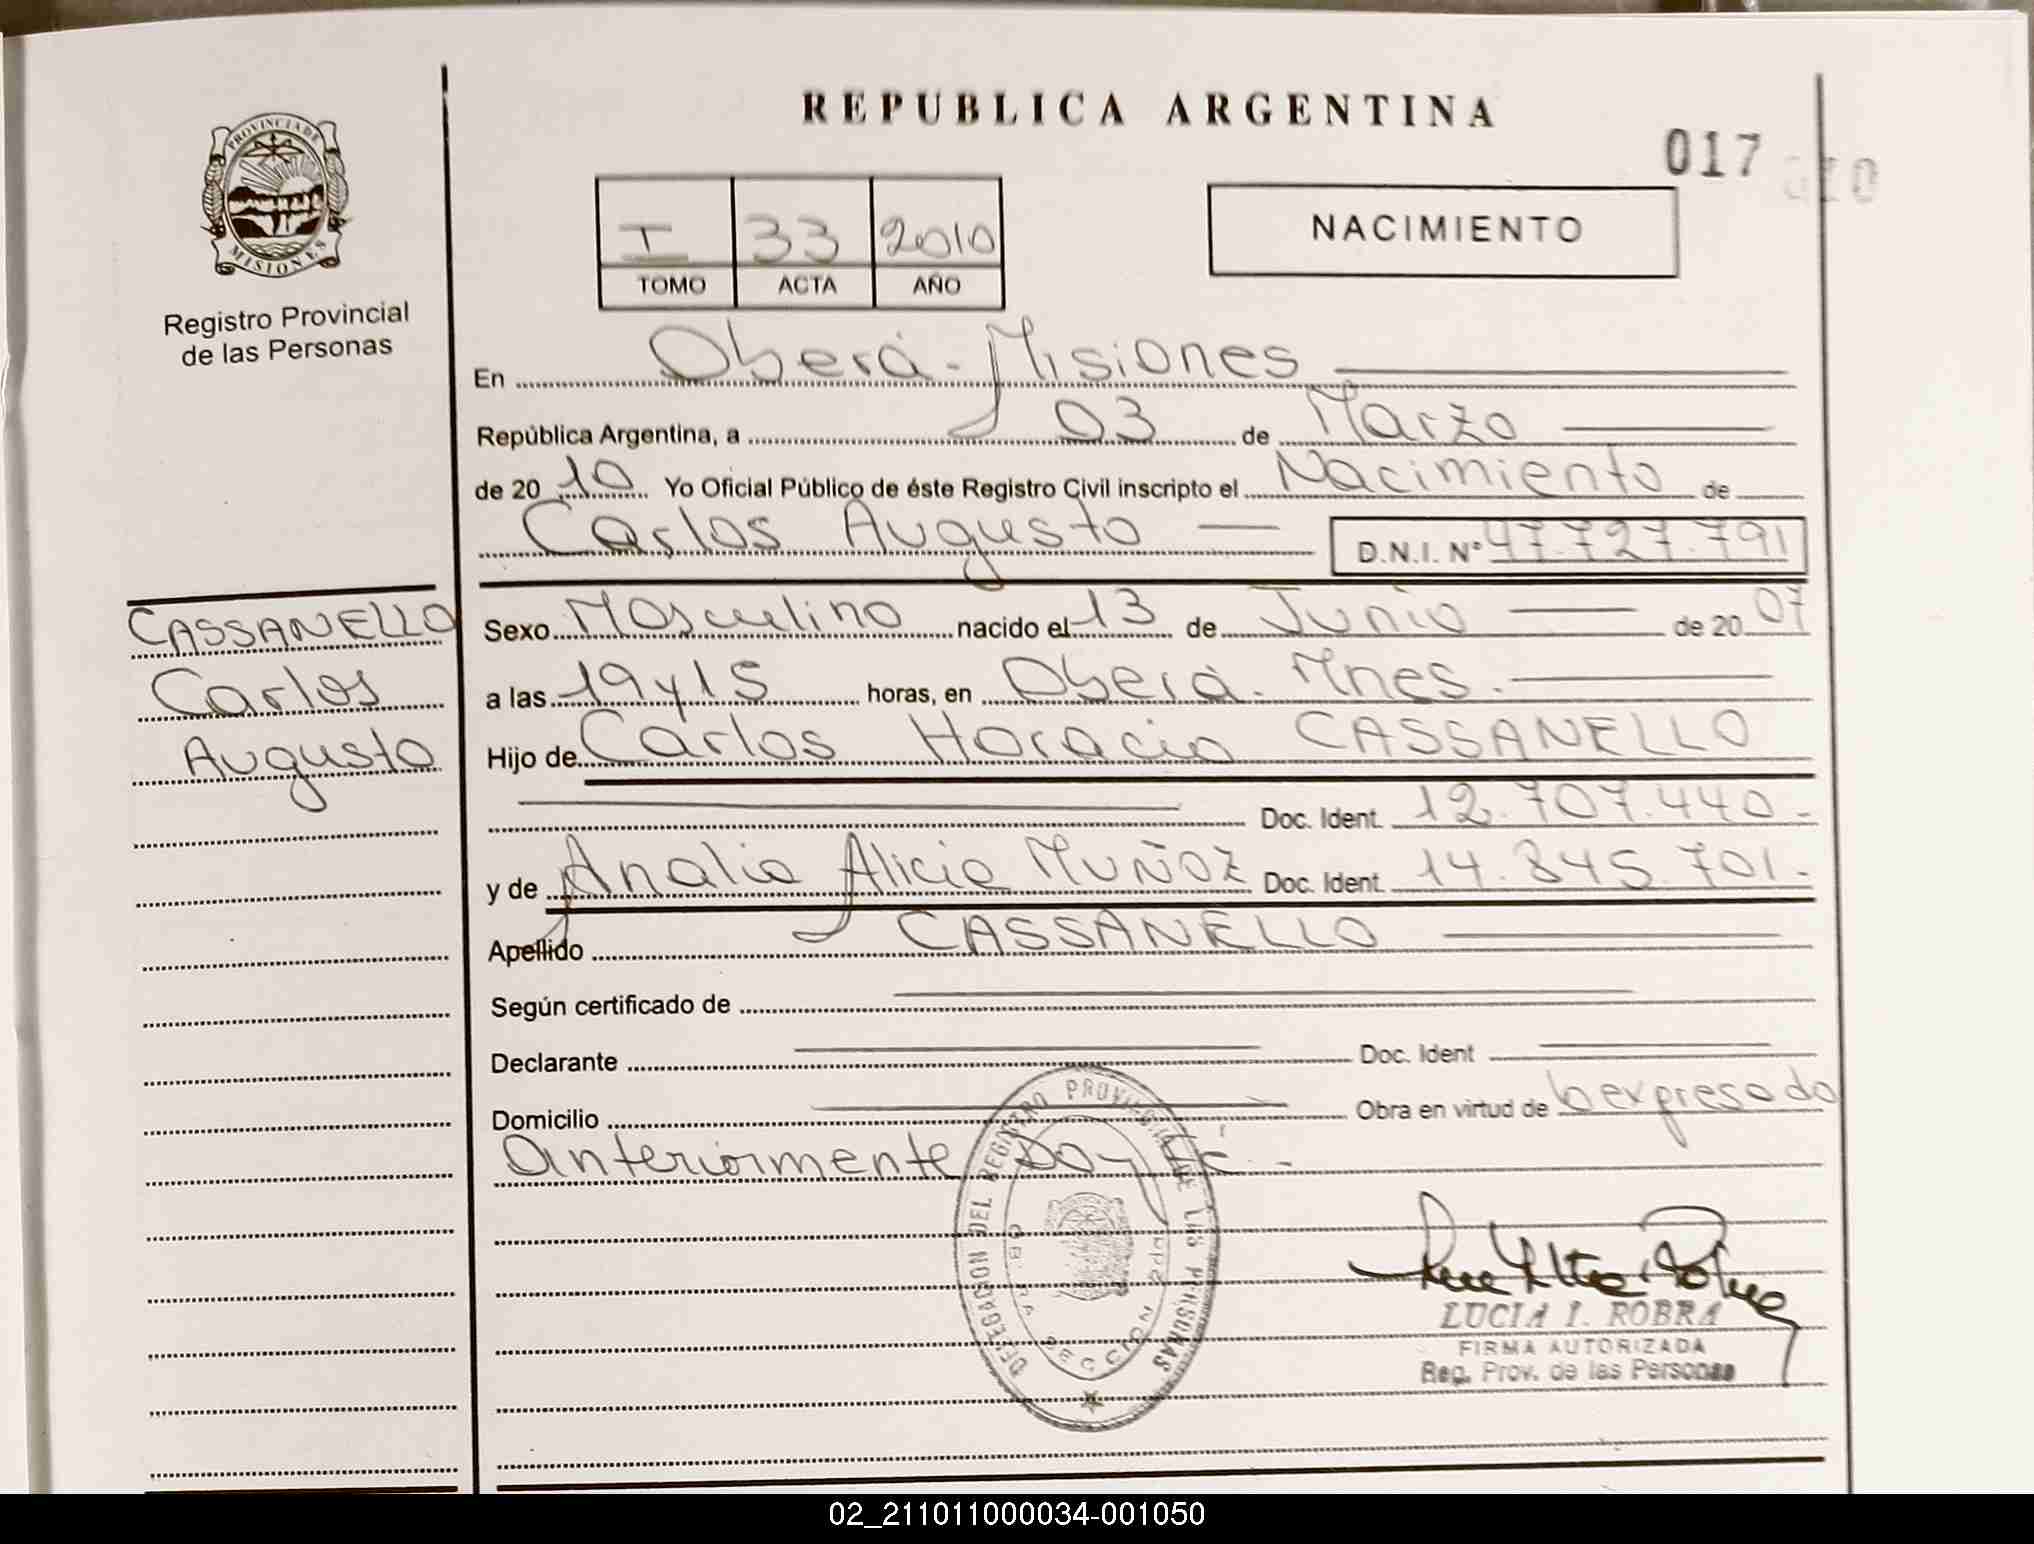 REPUBLICA ARGENTINA
017
PROVINCIA DE
MISIONES
Registro Provincial
de las Personas
I 33 2010
TOMO ACTA AÑO
NACIMIENTO
En Oberá - Misiones
República Argentina, a 03 de Marzo
de 2010 Yo Oficial Público de éste Registro Civil inscripto el Nacimiento de
Carlos Augusto D.N.I. Nº 47.727.791
CASSANELLO
Carlos
Augusto
Sexo Masculino nacido el 13 de Junio de 2007
a las 19 y 15 horas, en Oberá. Mnes.
Hijo de Carlos Horacio CASSANELLO
Doc. Ident. 12.707.440.-
y de Analia Alicia MUÑOZ Doc. Ident. 14.845.701.-
Apellido CASSANELLO
Según certificado de
Declarante Doc. Ident
Domicilio Obra en virtud de lo expresado
anteriormente Doy Fé.-
DELEGACION DEL REGISTRO PROVINCIAL DE LAS PERSONAS
SECCION 2da
LUCIA I. ROBRA
FIRMA AUTORIZADA
Reg. Prov. de las Personas
02_211011000034-001050